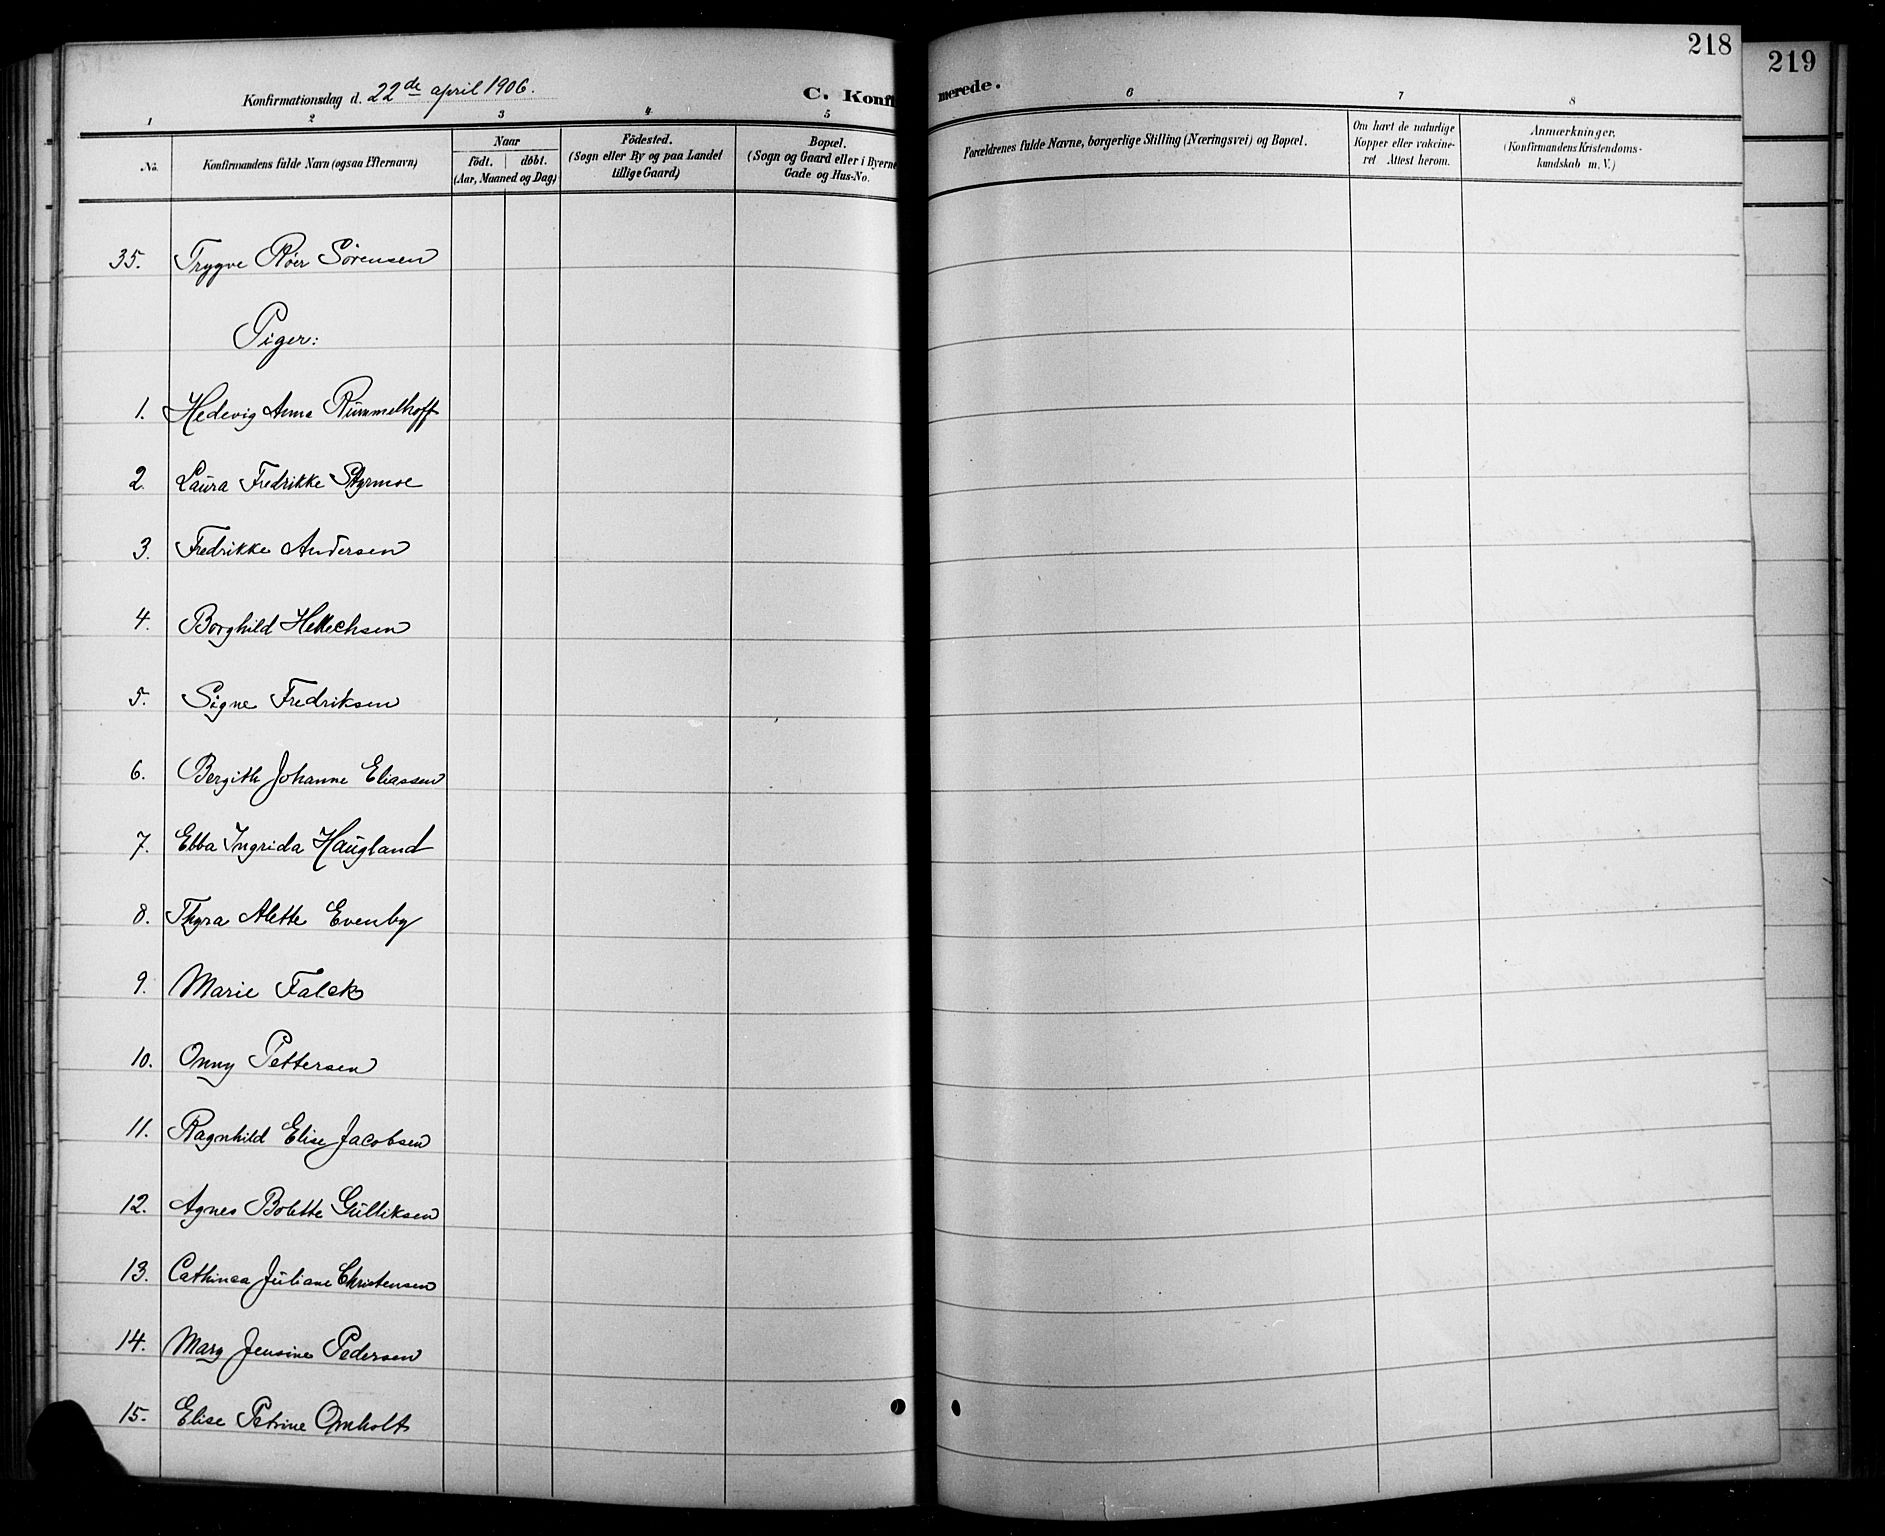 218
219
Konfirmationsdag d. 22de april 1906.
C. Konfi
merede.
1 2 3 4 5 6 7 8
No.
Konfirmandens fulde Navn (ogsaa Efternavn)
Naar
födt. döbt.
(Aar, Maaned og Dag)
Födested.
(Sogn eller By og paa Landet
tillige Gaard)
Bopæl.
(Sogn og Gaard eller i Byerne
Gade og Hus-No.
Forældrenes fulde Navne, borgerlige Stilling (Næringsvei) og Bopæl.
Om havt de naturlige
Kopper eller vakcine-
ret Attest herom.
Anmærkninger,
(Konfirmandens Kristendoms-
kundskab m. V.)
35. Trygve Röer Sørensen
Piger:
1. Hedevig Anna Rummelhoff
2. Laura Fredrikke Styrmoe
3. Fredrikke Andersen
4. Borghild
5. Signe Fredriksen
6. Bergith Johanne Eliassen
7. Ebba Ingrida Haugland
8. Thyra Alette Evenby
9. Marie Falck
10. Onny Pettersen
11. Ragnhild Elise Jacobsen
12. Agnes Bolette Gulliksen
13. Cathinca Juliane Christensen
14. Mary Jensine Pedersen
15. Elise Petrine Omholt